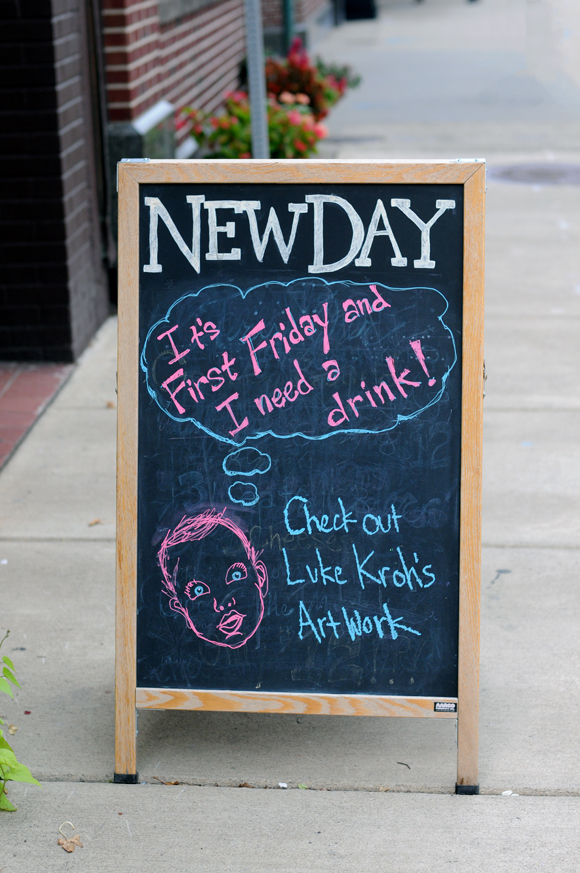 NEWDAY
It's
First Friday and
I need a
drink!
Check out
Luke Kroh's
ArtWork
AARCO